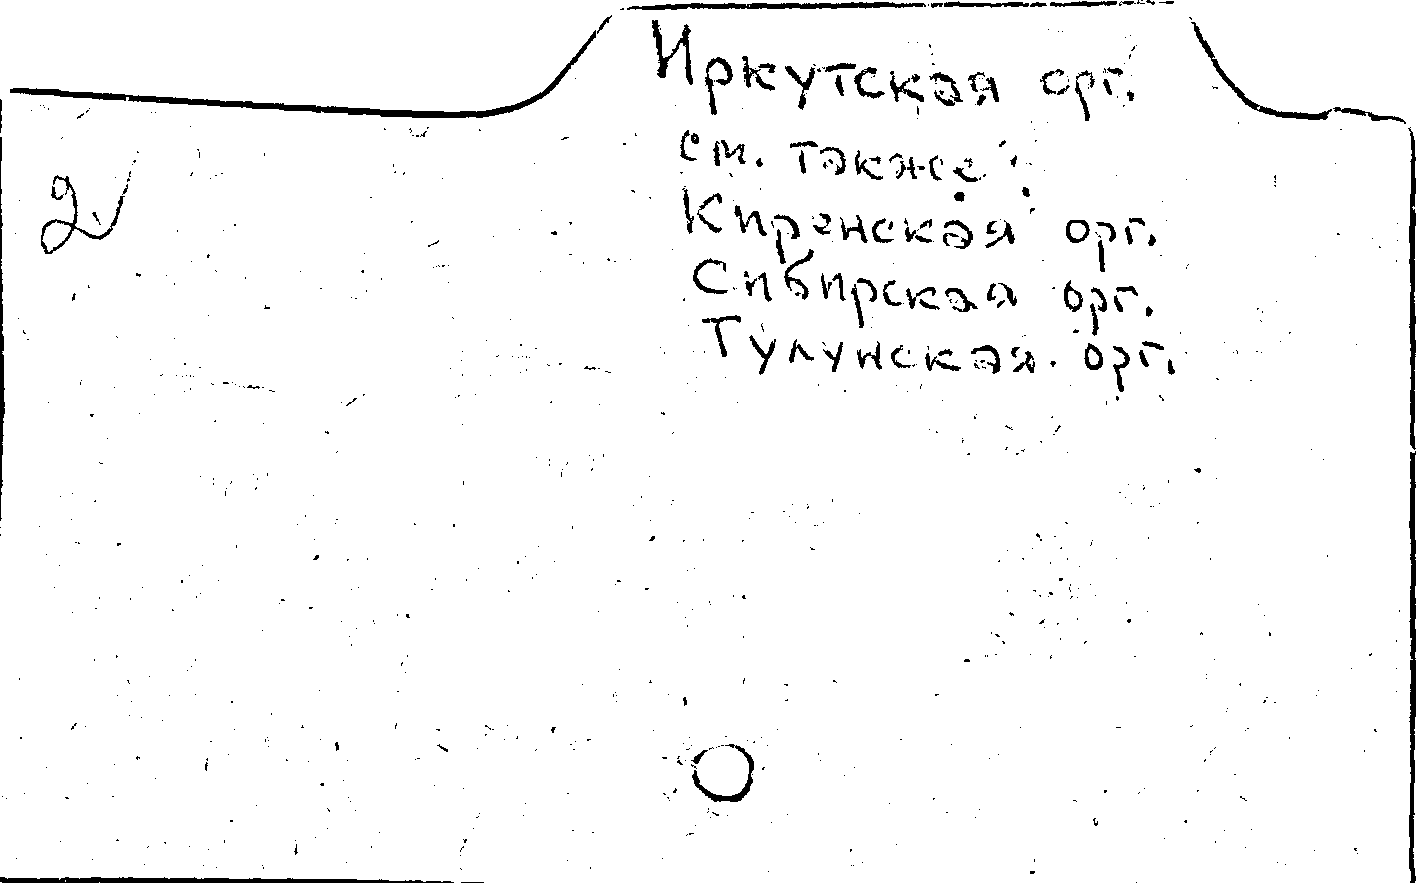 Иркутская орг.
см. также:
Киренская орг.
Сибирская орг.
Тулунская орг.
2